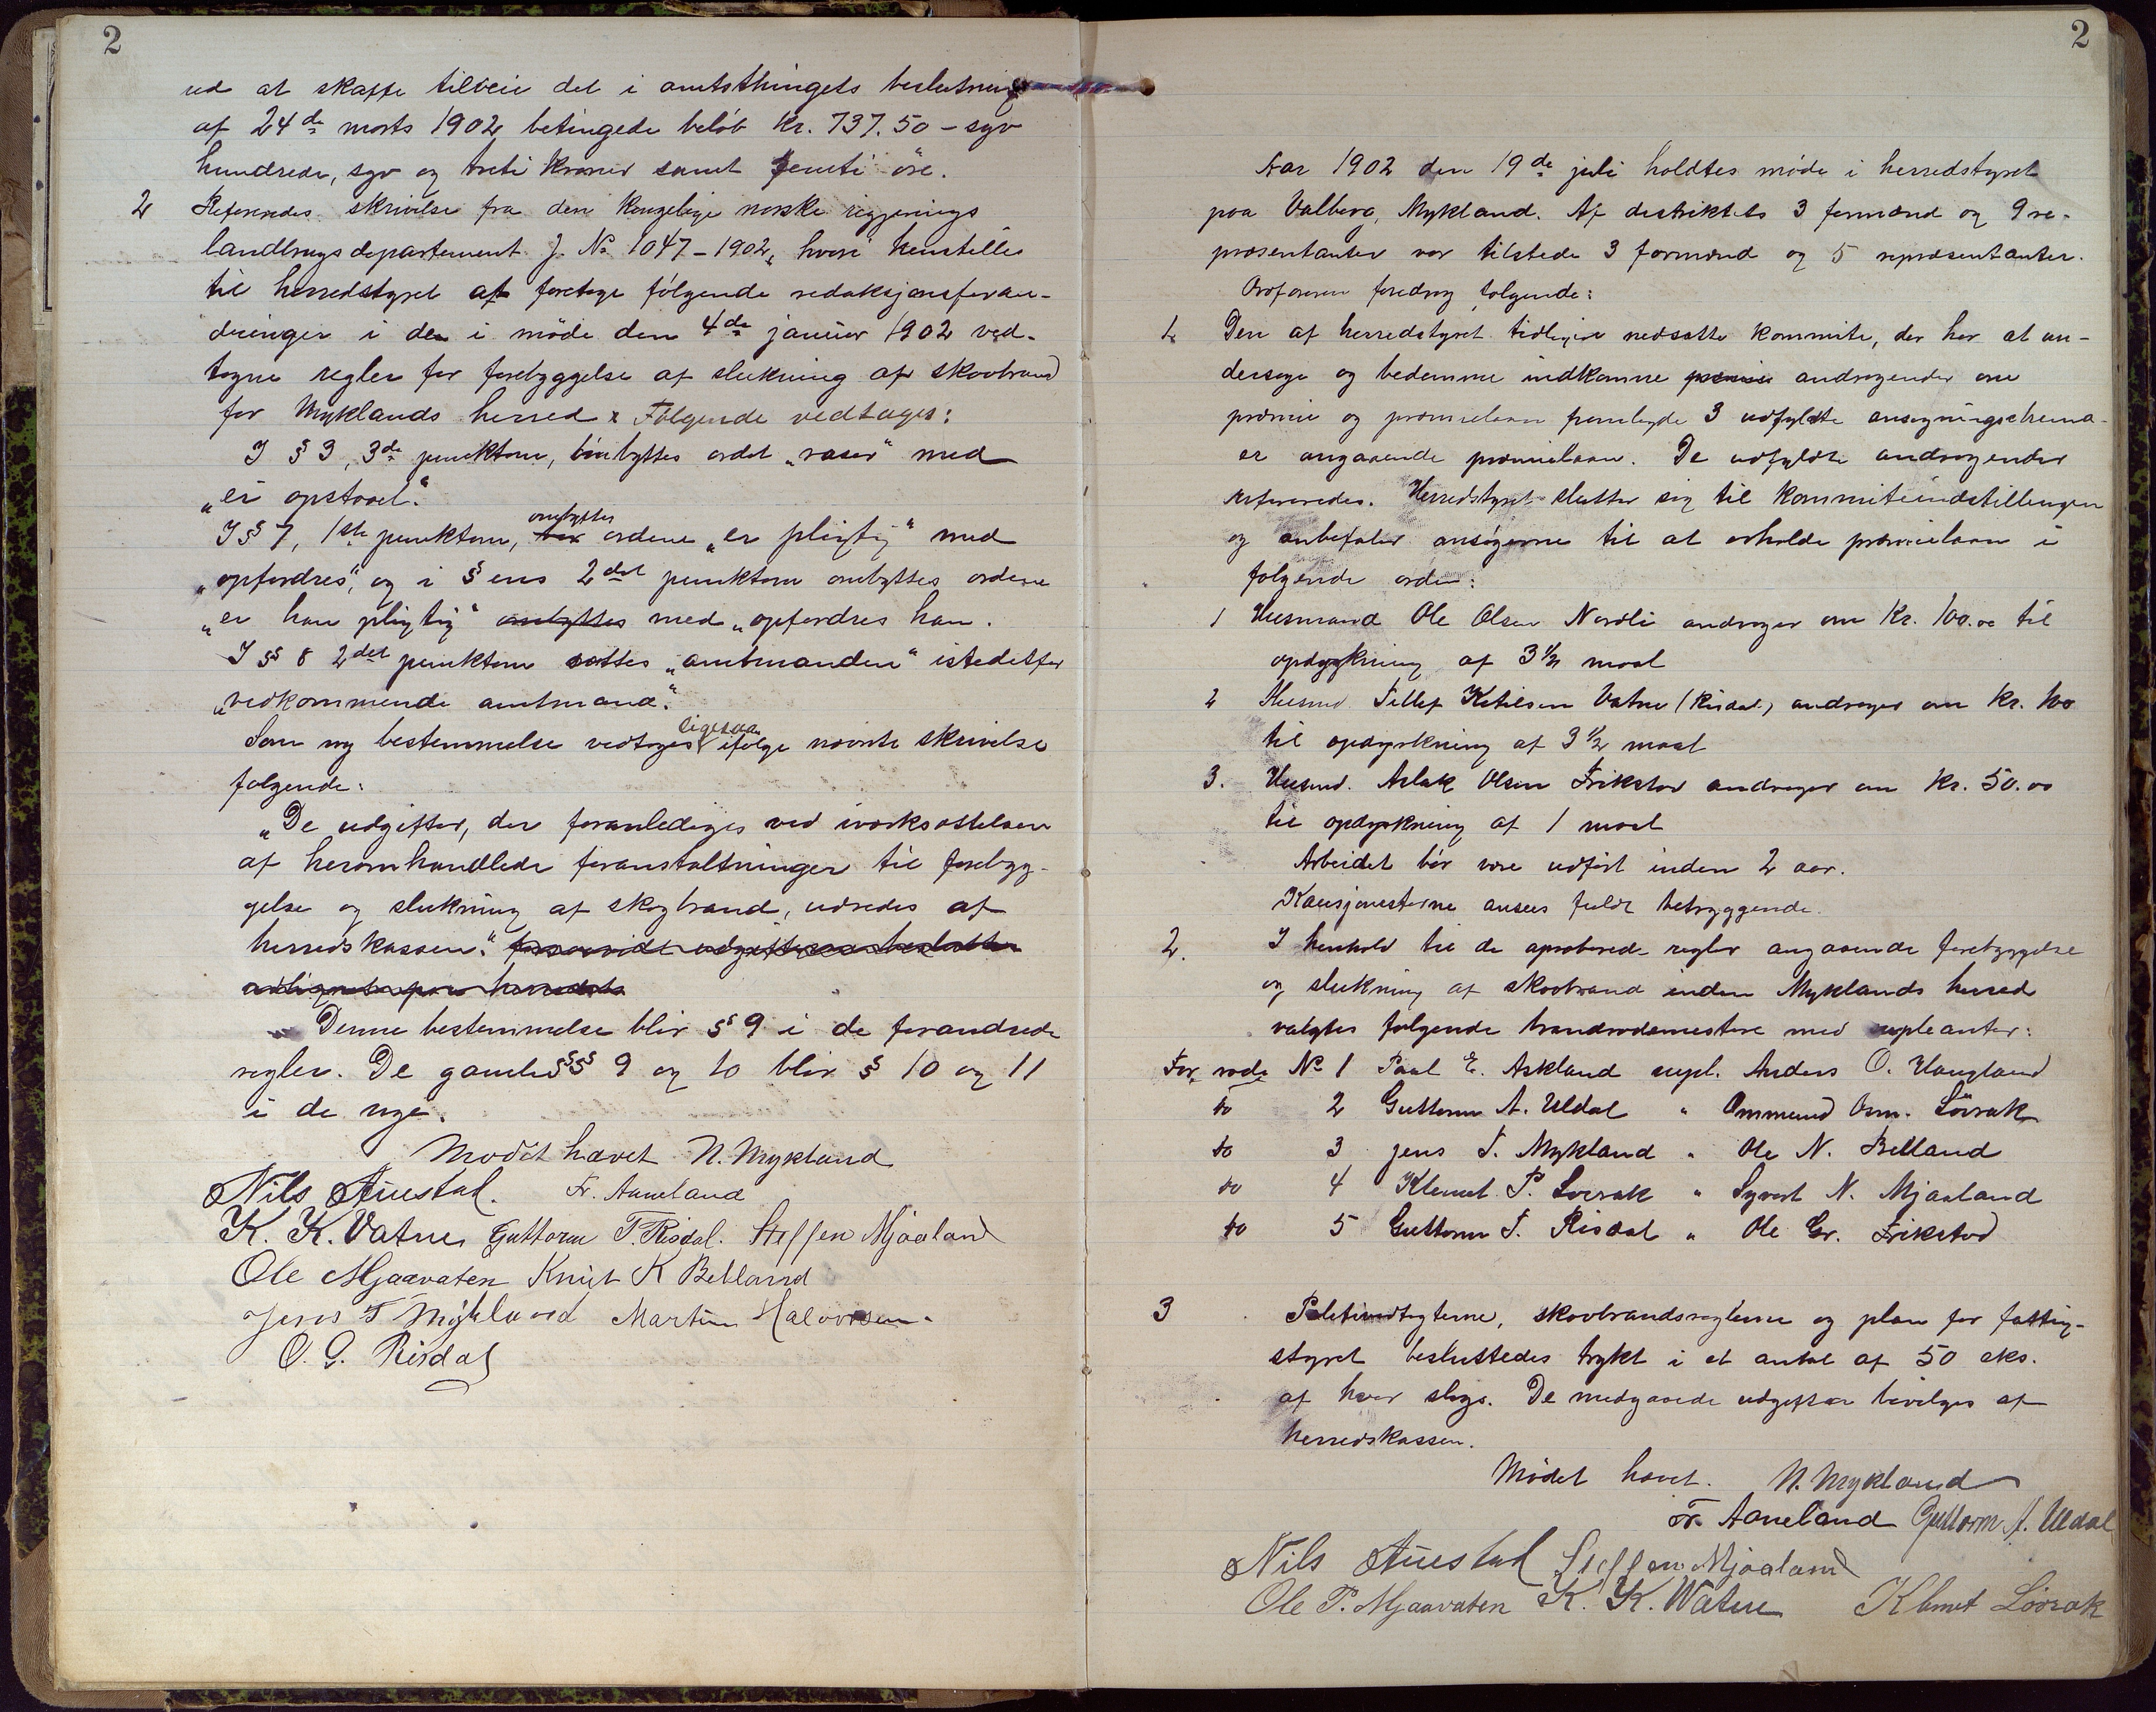 2
ud at skaffe tilveie det i amtsthingets beslutning
af 24de marts 1902 betingede beløb kr. 737.50 – syv
hundrede, syv og treti kroner samt femti øre.
2 Refereredes skrivelse fra den kongelige norske regjerings
landbrugsdepartement J. No 1047 – 1902, hvori henstilles
til herredstyret at foretage følgende redaksjonsforan-
dringer i de i møde den 4de januar 1902 ved-
tagne regler for forebyggelse af slukning af skovbrand
for Myklands herred. Følgende vedtages:
I § 3, 3de punktum, ombyttes ordet „raser" med
„er opstaaet."
I § 7, 1ste punktum, ombyttes ordene „er pligtig" med
„opfordres", og i §ens 2det punktum ombyttes ordene
„er han pligtig" ombyttes med „opfordres han.
I §§ 8 2det punktum sættes „amtmanden" istedetfor
„vedkommende amtmand".
Som ny bestemmelse vedtages ligesaa ifølge nævnte skrivelse
følgende:
„De udgifter, der foranlediges ved iværksættelsen
af heromhandlede foranstaltninger til forebyg-
gelse og slukning af skogbrand, udredes af
herredskassen."
Denne bestemmelse blir § 9 i de forandrede
regler. De gamle §§§ 9 og 10 blir § 10 og 11
i de nye.
Mødet hævet N. Mykland
Nils Austad. Fr. Aaneland
K. K. Vatne Guttorm T. Risdal. Steffen Mjaaland
Ole Mjaavaten Knut K Belland
Jens T Mykland Martin Halvorsen.
O. G. Risdal
2
Aar 1902 den 19de juli holdtes møde i herredstyret
paa Valberg, Mykland. Af distriktets 3 formænd og 9 re-
præsentanter var tilstede 3 formænd og 5 repræsentanter.
Ordføreren foredrog følgende:
1. Den af herredstyret tidligere nedsatte kommite, der har at un-
dersøge og bedømme indkomne præmie andragender om
præmie og præmielaan fremlagde 3 udfyldte ansøgningschema-
er angaaende præmielaan. De udfyldte andragender
refereredes. Herredstyret slutter sig til kommiteindstillingen
og anbefaler ansøgerne til at erholde præmielaan i
følgende orden:
1 Husmand Ole Olsen Nordli andrager om kr. 100.00 til
opdyrkning af 3 1/2 maal
2 Husmd. Tellef Ketilsen Vatne (Risdal) andrager om kr. 100
til opdyrkning af 3 1/2 maal
3. Husmd. Aslak Olsen Frikstad andrager om kr. 50.00
til opdyrkning af 1 maal
Arbeidet bør være udført inden 2 aar.
Kausjonisterne ansees fuldt betryggende.
2. I henhold til de aproberede regler angaaende forebyggelse
og slukning af skovbrand inden Myklands herred
valgtes følgende brandrodemestere med supleanter:
For rode No 1 Paal E. Askland supl. Anders O. Haugland
do 2 Guttorm A. Uldal " Ommund Osm. Løvrak
do 3 Jens T. Mykland " Ole N. Belland
do 4 Klemet P. Løvrak " Syvert N. Mjaaland
do 5 Guttorm T. Risdal " Ole Gr. Frikstad
3 Politivedtægterne, skovbrandsreglerne og plan for fattig-
styret besluttedes trykt i et antal af 50 eks.
af hver slags. De medgaaede udgifter bevilges af
herredskassen.
Mødet hævet. N. Mykland
Fr. Aaneland Guttorm A. Uldal
Nils Austad Steffen Mjaaland
Ole P. Mjaavaten K. K. Watne Klemet Løvrak